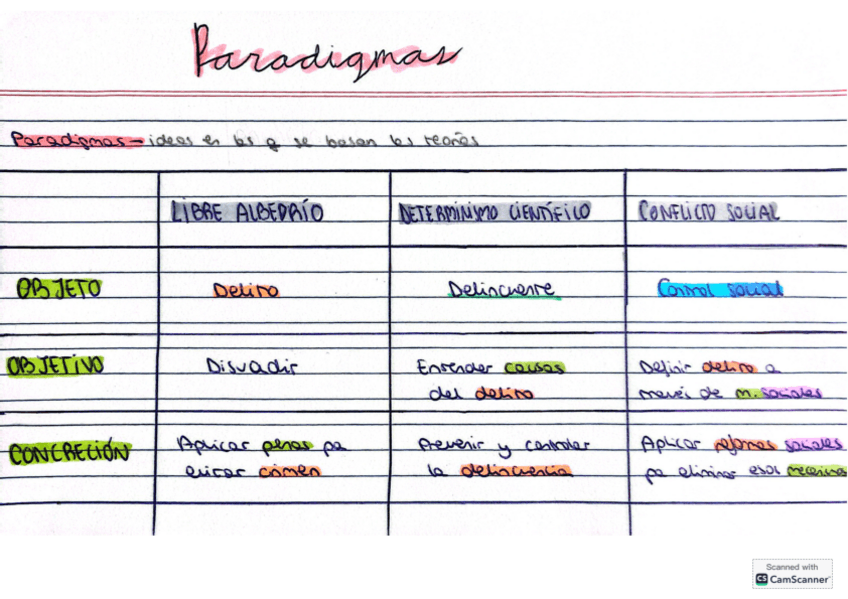 Paradigmas
Paradigmas - ideas en las q se basan las teorías
LIBRE ALBEDRÍO DETERMINISMO CIENTÍFICO CONFLICTO SOCIAL
OBJETO Delito Delincuente Control social
OBJETIVO Disuadir Entender causas Definir delito a
del delito través de m. sociales
CONCRECIÓN Aplicar penas pa Prevenir y controlar Aplicar reformas sociales
evitar crimen la delincuencia pa eliminar esos
Scanned with
CS CamScanner